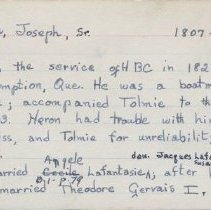 , Joseph, Sr. 1807-
the service of HBC in 182
mption, Que. He was a boatm
; accompanied Tolmie to the
3. Heron had trouble with hi
ss, and Tolmie for unreliability
Angele dau. Jacques Lafa
rried Cecile Lafantasie, after
B, 1-p.79
married Theodore Gervais I.